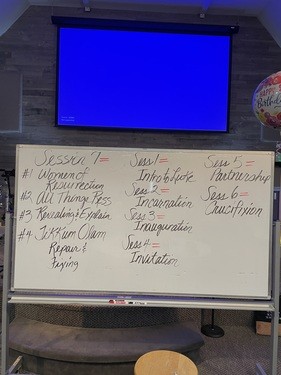 Session 7 =
#1 Women of
Resurrection
#2 All Things Poss
#3 Revealing & Explain
#4 Tikkum Olam
Repair &
Fixing
Sess 1 =
Intro to Luke
Sess 2 =
Incarnation
Sess 3 =
Inauguration
Sess 4 =
Invitation
Sess 5 =
Partnership
Sess 6 =
Crucifixion
Happy
Birthday